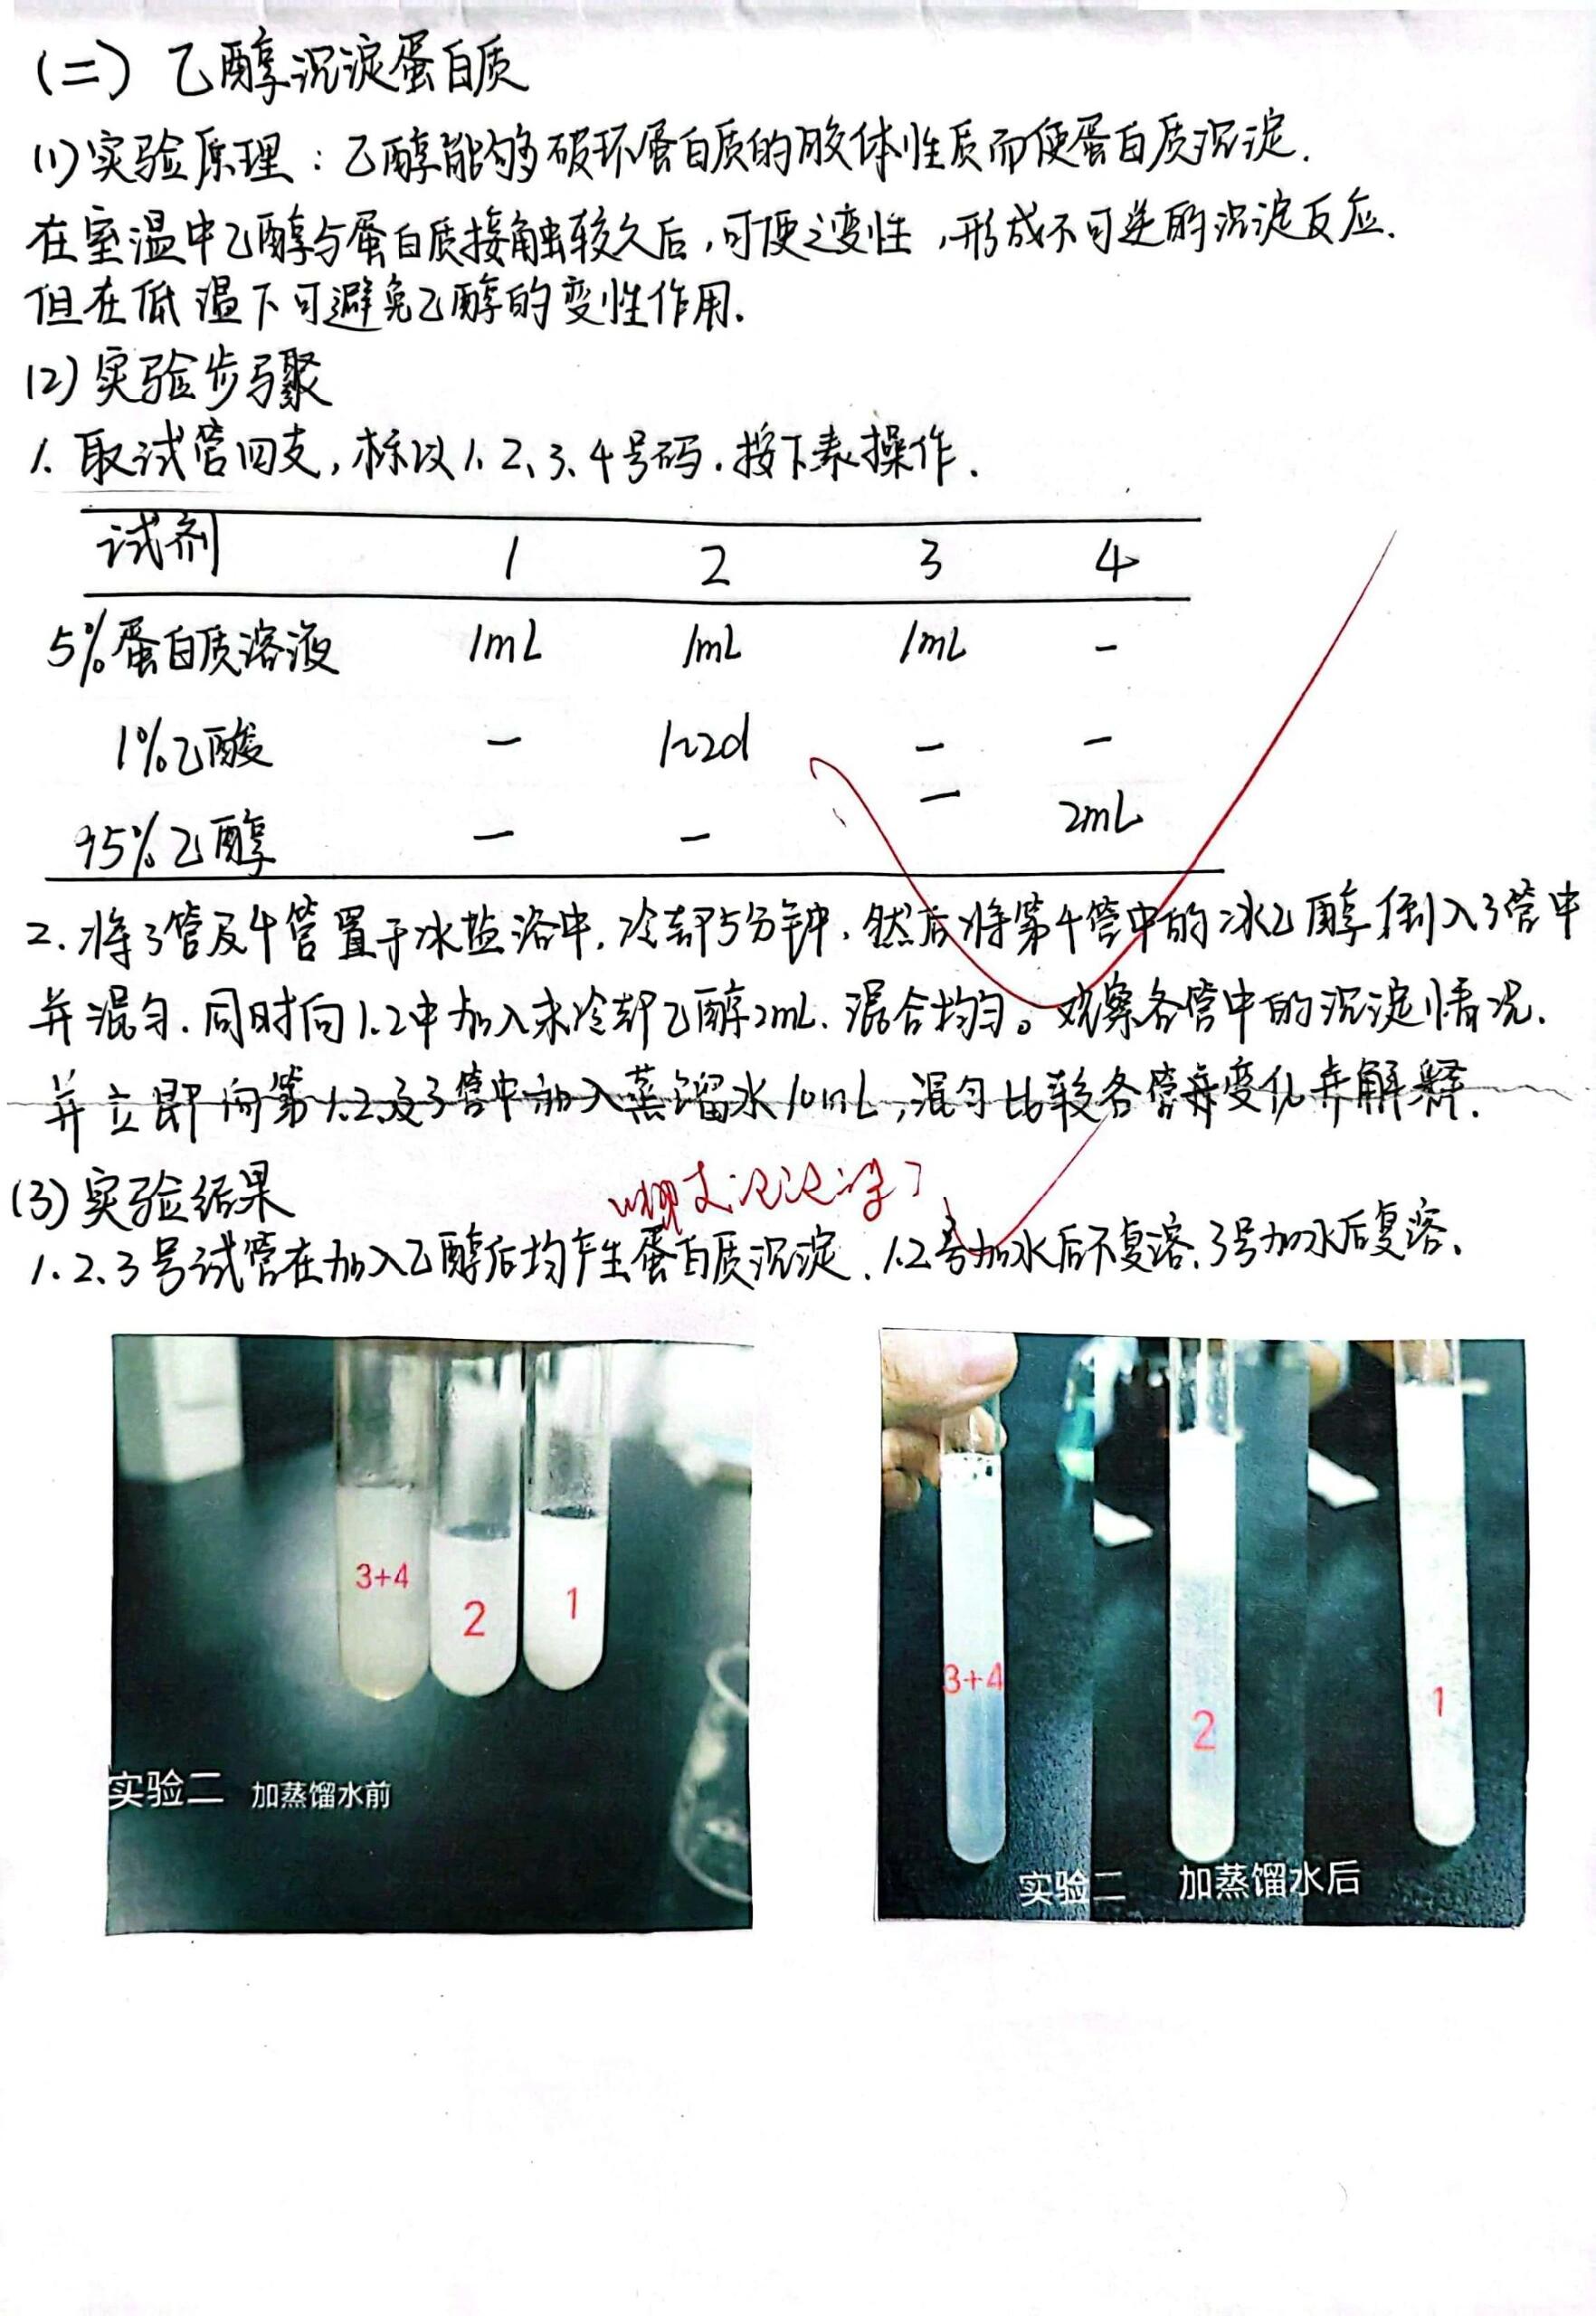 (二) 乙醇沉淀蛋白质
(1) 实验原理：乙醇能够破坏蛋白质的胶体性质而使蛋白质沉淀.
在室温中乙醇与蛋白质接触较久后,可使之变性,形成不可逆的沉淀反应.
但在低温下可避免乙醇的变性作用.
(2) 实验步骤
1. 取试管四支,标以1、2、3、4号码.按下表操作.
试剂 1 2 3 4
5%蛋白质溶液 1mL 1mL 1mL -
1%乙酸 - 1~2d - -
95%乙醇 - - - 2mL
2. 将3管及4管置于冰盐浴中,冷却5分钟,然后将第4管中的冰乙醇倒入3管中
并混匀.同时向1.2中加入未冷却乙醇2mL.混合均匀。观察各管中的沉淀情况.
并立即向第1.2及3管中加入蒸馏水10mL,混匀比较各管变化并解释.
(3) 实验结果
1.2.3号试管在加入乙醇后均产生蛋白质沉淀.1.2号加水后不复溶.3号加水后复溶.
3+4
2
1
实验二 加蒸馏水前
3+4
2
1
实验二 加蒸馏水后